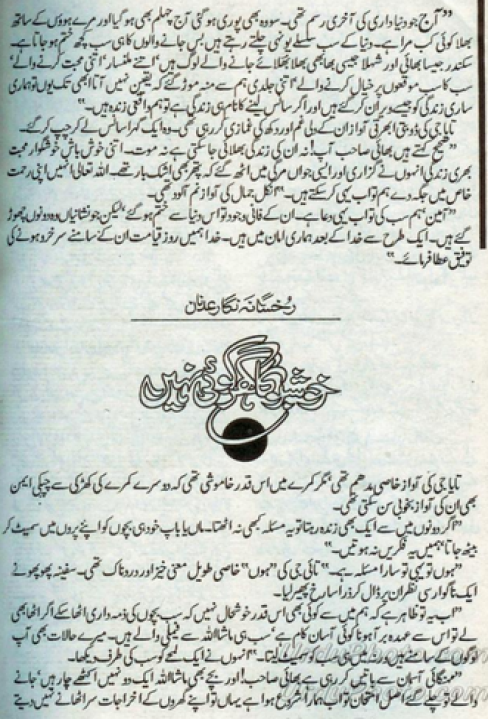 "آج جو دنیا داری کی آخری رسم تھی۔ سو وہ بھی پوری ہو گئی آج چہلم بھی ہو گیا اور مرے ہوؤں کے ساتھ
بھلا کوئی کب مرا ہے۔ دنیا کے سب سلسلے یونہی چلتے رہتے ہیں بس جانے والوں کا ہی سب کچھ ختم ہو جاتا ہے۔
سکندر جیسا بھائی اور شہلا جیسی بھابھی بھلا بھلائے جانے والے لوگ ہیں' اتنے ملنسار' اتنی محبت کرنے والے'
سب کا سب موقعوں پر خیال کرنے والے' اتنی جلدی ہم سے منہ موڑ گئے کہ یقین نہیں آتا ابھی تک یوں تو ہماری
ساری زندگی کو جیسے ویران کر گئے ہیں اور اگر سانس لینے کا نام ہی زندگی ہے تو ہم واقعی زندہ ہیں۔"
تایا جی کی ڈوبتی ابھرتی آواز ان کے دلی غم اور دکھ کی غمازی کر رہی تھی۔ وہ ایک گہرا سانس لے کر چپ کر گئے۔
"صحیح کہتے ہیں بھائی صاحب آپ! نہ ان کی زندگی بھلائی جا سکتی ہے نہ موت۔ اتنی خوش باش خوشگوار محبت
بھری زندگی انہوں نے گزاری اور ایسی جواں مرگی میں اٹھ گئے کہ پتھر بھی اشک بار تھے۔ اللہ تعالیٰ انہیں اپنی رحمت
خاص میں جگہ دے ہم تو اب یہی کر سکتے ہیں۔" انکل جمال کی آواز نم آلود تھی۔
"آمین' ہم سب کی تو اب یہی دعا ہے۔ ان کے فانی وجود تو اس دنیا سے ختم ہو گئے' لیکن جو نشانیاں وہ دونوں چھوڑ
گئے ہیں۔ ایک طرح سے خدا کے بعد ہماری امان میں ہیں۔ خدا ہمیں روز قیامت ان کے سامنے سرخرو ہونے کی
توفیق عطا فرمائے۔"
رخسانہ نگار عدنان
خوشبو کا گھر کوئی نہیں
تایا جی کی آواز خاصی مدھم تھی' مگر کمرے میں اس قدر خاموشی تھی کہ دوسرے کمرے کی کھڑکی سے چپکی ایمن
بھی ان کی آواز بخوبی سن سکتی تھی۔
"اگر دونوں میں سے ایک بھی زندہ رہتا تو یہ مسئلہ کبھی نہ اٹھتا۔ ماں یا باپ خود ہی بچوں کو اپنے پروں میں سمیٹ کر
بیٹھ جاتا' ہمیں یہ فکریں نہ ہوتیں۔"
"ہوں تو یہی تو سارا مسئلہ ہے۔" تائی جی کی "ہوں" خاصی طویل معنی خیز اور دردناک تھی۔ سفینہ پھوپھو نے
ایک ناگوار سی نظر ان پر ڈال کر ذرا سا رخ پھیر لیا۔
"اب یہ تو ظاہر ہے کہ ہم میں سے کوئی بھی اس قدر خوشحال نہیں کہ سب بچوں کی ذمہ داری اٹھا سکے اگر اٹھا بھی
لے تو اس سے عہدہ برآ ہونا کوئی آسان کام ہے' سب ہی ماشاء اللہ سے فیملی والے ہیں۔ میرے حالات بھی آپ
لوگوں کے سامنے ہیں ورنہ میں ہی سب کو سمیٹ لیتا۔" انہوں نے ایک لمحے کو سب کی طرف دیکھا۔
"مہنگائی آسمان سے باتیں کر رہی ہے بھائی صاحب! اور بچے بھی ماشاء اللہ ایک دو نہیں اکٹھے چار ہیں' جانے
والے تو چلے گئے اصل امتحان تو اب ہمارا شروع ہوا ہے یہاں تو اپنے گھروں کے اخراجات سر اٹھانے نہیں دیتے